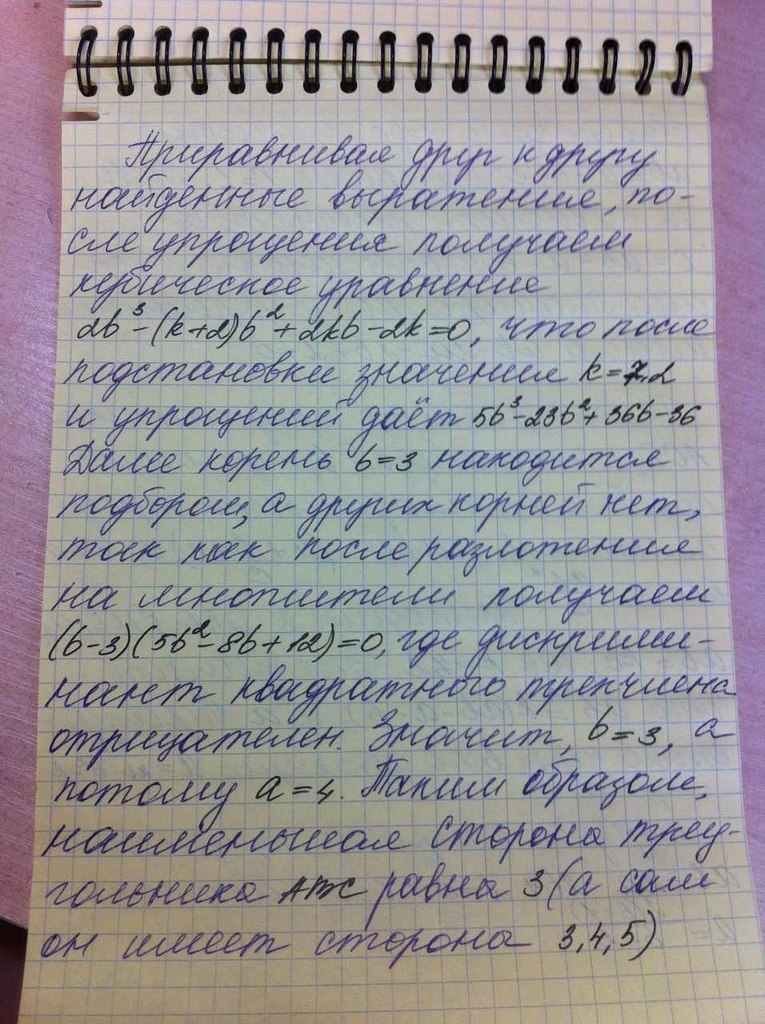 Приравнивая друг к другу
найденные выражения, по-
сле упрощения получаем
кубическое уравнение
2b³-(k+2)b²+2kb-2k=0, что после
подстановки значения k=7,2
и упрощений даёт 5b³-23b²+36b-36
Далее корень b=3 находится
подбором, а других корней нет,
так как после разложения
на множители получаем
(b-3)(5b²-8b+12)=0, где дискрими-
нант квадратного трехчлена
отрицателен. Значит, b=3, а
потому a=4. Таким образом,
наименьшая сторона треу-
гольника ABC равна 3 (а сам
он имеет сторона 3,4,5)